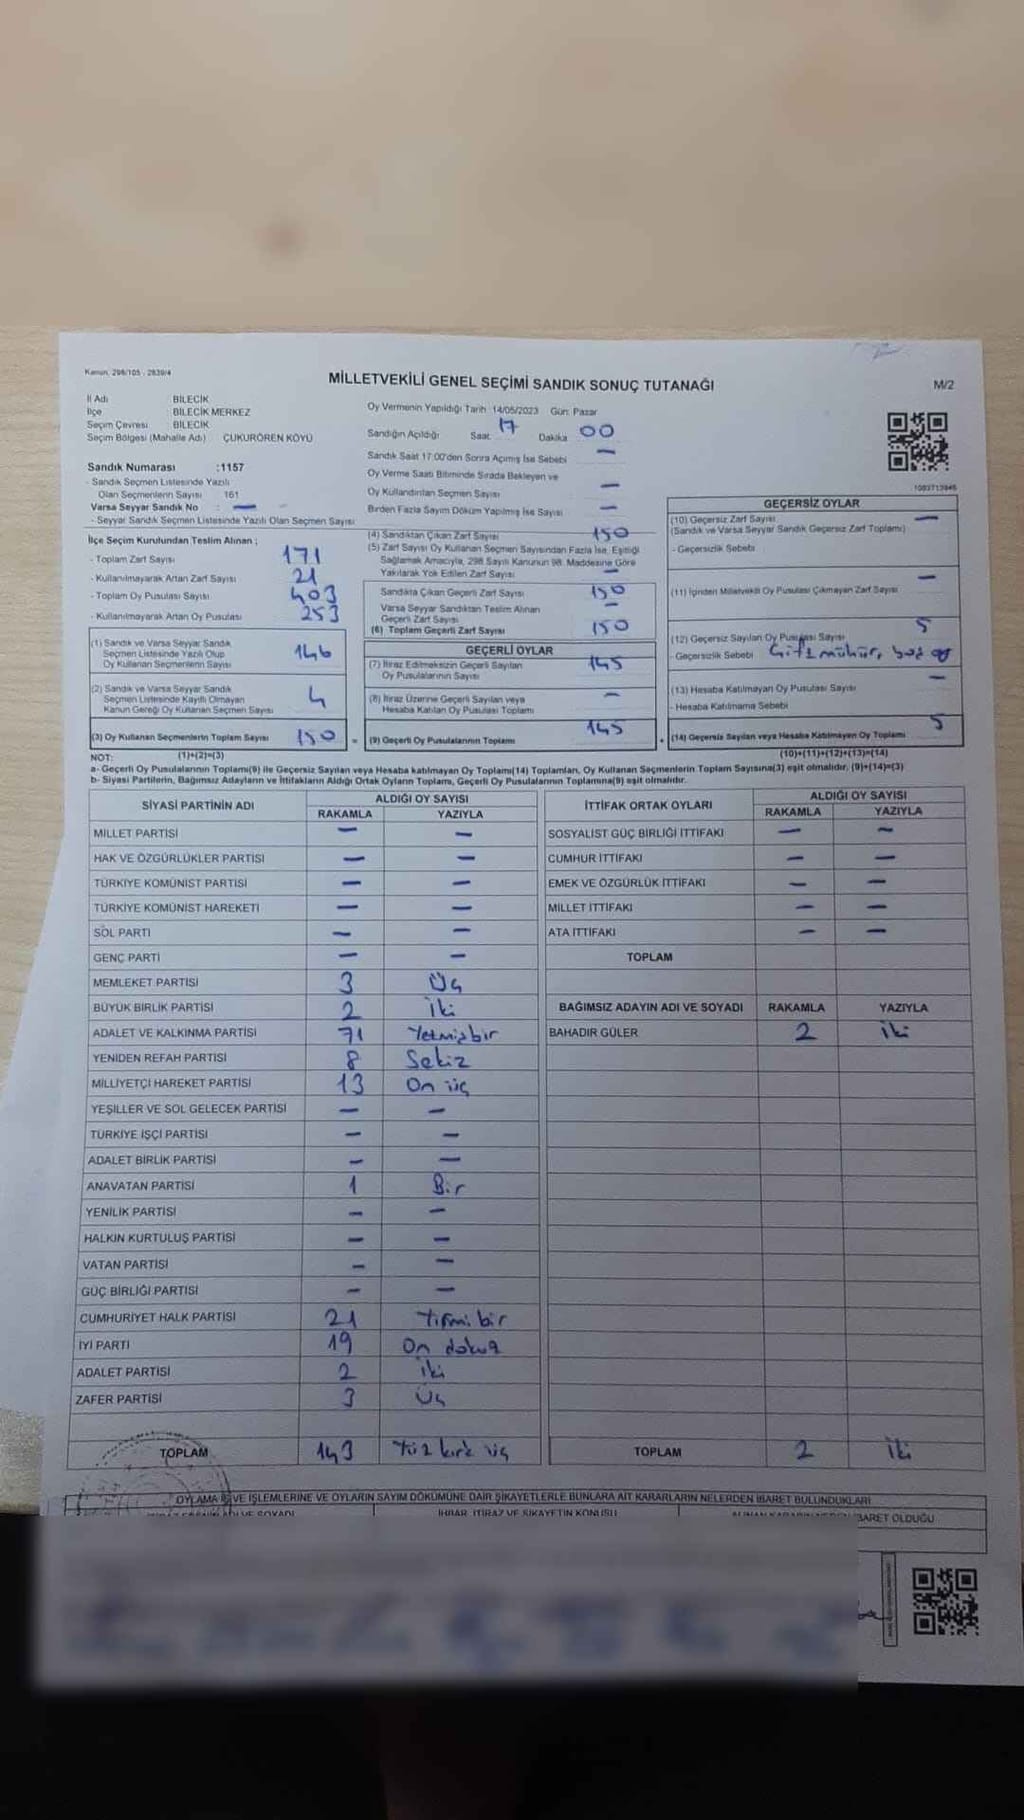 Kanun. 298/105 - 2839/4
MİLLETVEKİLİ GENEL SEÇİMİ SANDIK SONUÇ TUTANAĞI
M/2
İl Adı BİLECİK
İlçe BİLECİK MERKEZ
Seçim Çevresi BİLECİK
Seçim Bölgesi (Mahalle Adı) ÇUKURÖREN KÖYÜ
Sandık Numarası :1157
- Sandık Seçmen Listesinde Yazılı
Olan Seçmenlerin Sayısı 161
Varsa Seyyar Sandık No : —
- Seyyar Sandık Seçmen Listesinde Yazılı Olan Seçmen Sayısı
İlçe Seçim Kurulundan Teslim Alınan ;
- Toplam Zarf Sayısı 171
- Kullanılmayarak Artan Zarf Sayısı 21
- Toplam Oy Pusulası Sayısı 403
- Kullanılmayarak Artan Oy Pusulası 253
(1) Sandık ve Varsa Seyyar Sandık
Seçmen Listesinde Yazılı Olup
Oy Kullanan Seçmenlerin Sayısı 146
(2) Sandık ve Varsa Seyyar Sandık
Seçmen Listesinde Kayıtlı Olmayan
Kanun Gereği Oy Kullanan Seçmen Sayısı 4
(3) Oy Kullanan Seçmenlerin Toplam Sayısı 150 =
(1)+(2)=(3)
Oy Vermenin Yapıldığı Tarih : 14/05/2023 Gün: Pazar
Sandığın Açıldığı Saat 17 Dakika 00
Sandık Saat 17:00'den Sonra Açılmış İse Sebebi —
Oy Verme Saati Bitiminde Sırada Bekleyen ve
Oy Kullandırılan Seçmen Sayısı —
Birden Fazla Sayım Döküm Yapılmış İse Sayısı —
(4) Sandıktan Çıkan Zarf Sayısı 150
(5) Zarf Sayısı Oy Kullanan Seçmen Sayısından Fazla İse, Eşitliği
Sağlamak Amacıyla, 298 Sayılı Kanunun 98. Maddesine Göre
Yakılarak Yok Edilen Zarf Sayısı —
Sandıkta Çıkan Geçerli Zarf Sayısı 150
Varsa Seyyar Sandıktan Teslim Alınan
Geçerli Zarf Sayısı —
(6) Toplam Geçerli Zarf Sayısı 150
GEÇERLİ OYLAR
(7) İtiraz Edilmeksizin Geçerli Sayılan
Oy Pusulalarının Sayısı 145
(8) İtiraz Üzerine Geçerli Sayılan veya
Hesaba Katılan Oy Pusulası Toplamı —
(9) Geçerli Oy Pusulalarının Toplamı 145 +
1083713945
GEÇERSİZ OYLAR
(10) Geçersiz Zarf Sayısı —
(Sandık ve Varsa Seyyar Sandık Geçersiz Zarf Toplamı)
- Geçersizlik Sebebi
(11) İçinden Milletvekili Oy Pusulası Çıkmayan Zarf Sayısı —
(12) Geçersiz Sayılan Oy Pusulası Sayısı 5
- Geçersizlik Sebebi Çift mühür, boş oy
(13) Hesaba Katılmayan Oy Pusulası Sayısı —
- Hesaba Katılmama Sebebi
(14) Geçersiz Sayılan veya Hesaba Katılmayan Oy Toplamı 5
(10)+(11)+(12)+(13)=(14)
NOT:
a- Geçerli Oy Pusulalarının Toplamı(9) ile Geçersiz Sayılan veya Hesaba katılmayan Oy Toplamı(14) Toplamları, Oy Kullanan Seçmenlerin Toplam Sayısına(3) eşit olmalıdır. (9)+(14)=(3)
b- Siyasi Partilerin, Bağımsız Adayların ve İttifakların Aldığı Ortak Oyların Toplamı, Geçerli Oy Pusulalarının Toplamına(9) eşit olmalıdır.
SİYASİ PARTİNİN ADI ALDIĞI OY SAYISI
RAKAMLA YAZIYLA
MİLLET PARTİSİ — —
HAK VE ÖZGÜRLÜKLER PARTİSİ — —
TÜRKİYE KOMÜNİST PARTİSİ — —
TÜRKİYE KOMÜNİST HAREKETİ — —
SOL PARTİ — —
GENÇ PARTİ — —
MEMLEKET PARTİSİ 3 Üç
BÜYÜK BİRLİK PARTİSİ 2 İki
ADALET VE KALKINMA PARTİSİ 71 Yetmişbir
YENİDEN REFAH PARTİSİ 8 Sekiz
MİLLİYETÇİ HAREKET PARTİSİ 13 On üç
YEŞİLLER VE SOL GELECEK PARTİSİ — —
TÜRKİYE İŞÇİ PARTİSİ — —
ADALET BİRLİK PARTİSİ — —
ANAVATAN PARTİSİ 1 Bir
YENİLİK PARTİSİ — —
HALKIN KURTULUŞ PARTİSİ — —
VATAN PARTİSİ — —
GÜÇ BİRLİĞİ PARTİSİ — —
CUMHURİYET HALK PARTİSİ 21 Yirmi bir
İYİ PARTİ 19 On dokuz
ADALET PARTİSİ 2 İki
ZAFER PARTİSİ 3 Üç
TOPLAM 143 Yüz kırk üç
İTTİFAK ORTAK OYLARI ALDIĞI OY SAYISI
RAKAMLA YAZIYLA
SOSYALİST GÜÇ BİRLİĞİ İTTİFAKI — —
CUMHUR İTTİFAKI — —
EMEK VE ÖZGÜRLÜK İTTİFAKI — —
MİLLET İTTİFAKI — —
ATA İTTİFAKI — —
TOPLAM
BAĞIMSIZ ADAYIN ADI VE SOYADI RAKAMLA YAZIYLA
BAHADIR GÜLER 2 İki
TOPLAM 2 İki
OYLAMA İŞ VE İŞLEMLERİNE VE OYLARIN SAYIM DÖKÜMÜNE DAİR ŞİKAYETLERLE BUNLARA AİT KARARLARIN NELERDEN İBARET BULUNDUKLARI
ADI VE SOYADI İHBAR, İTİRAZ VE ŞİKAYETİN KONUSU İBARET OLDUĞU